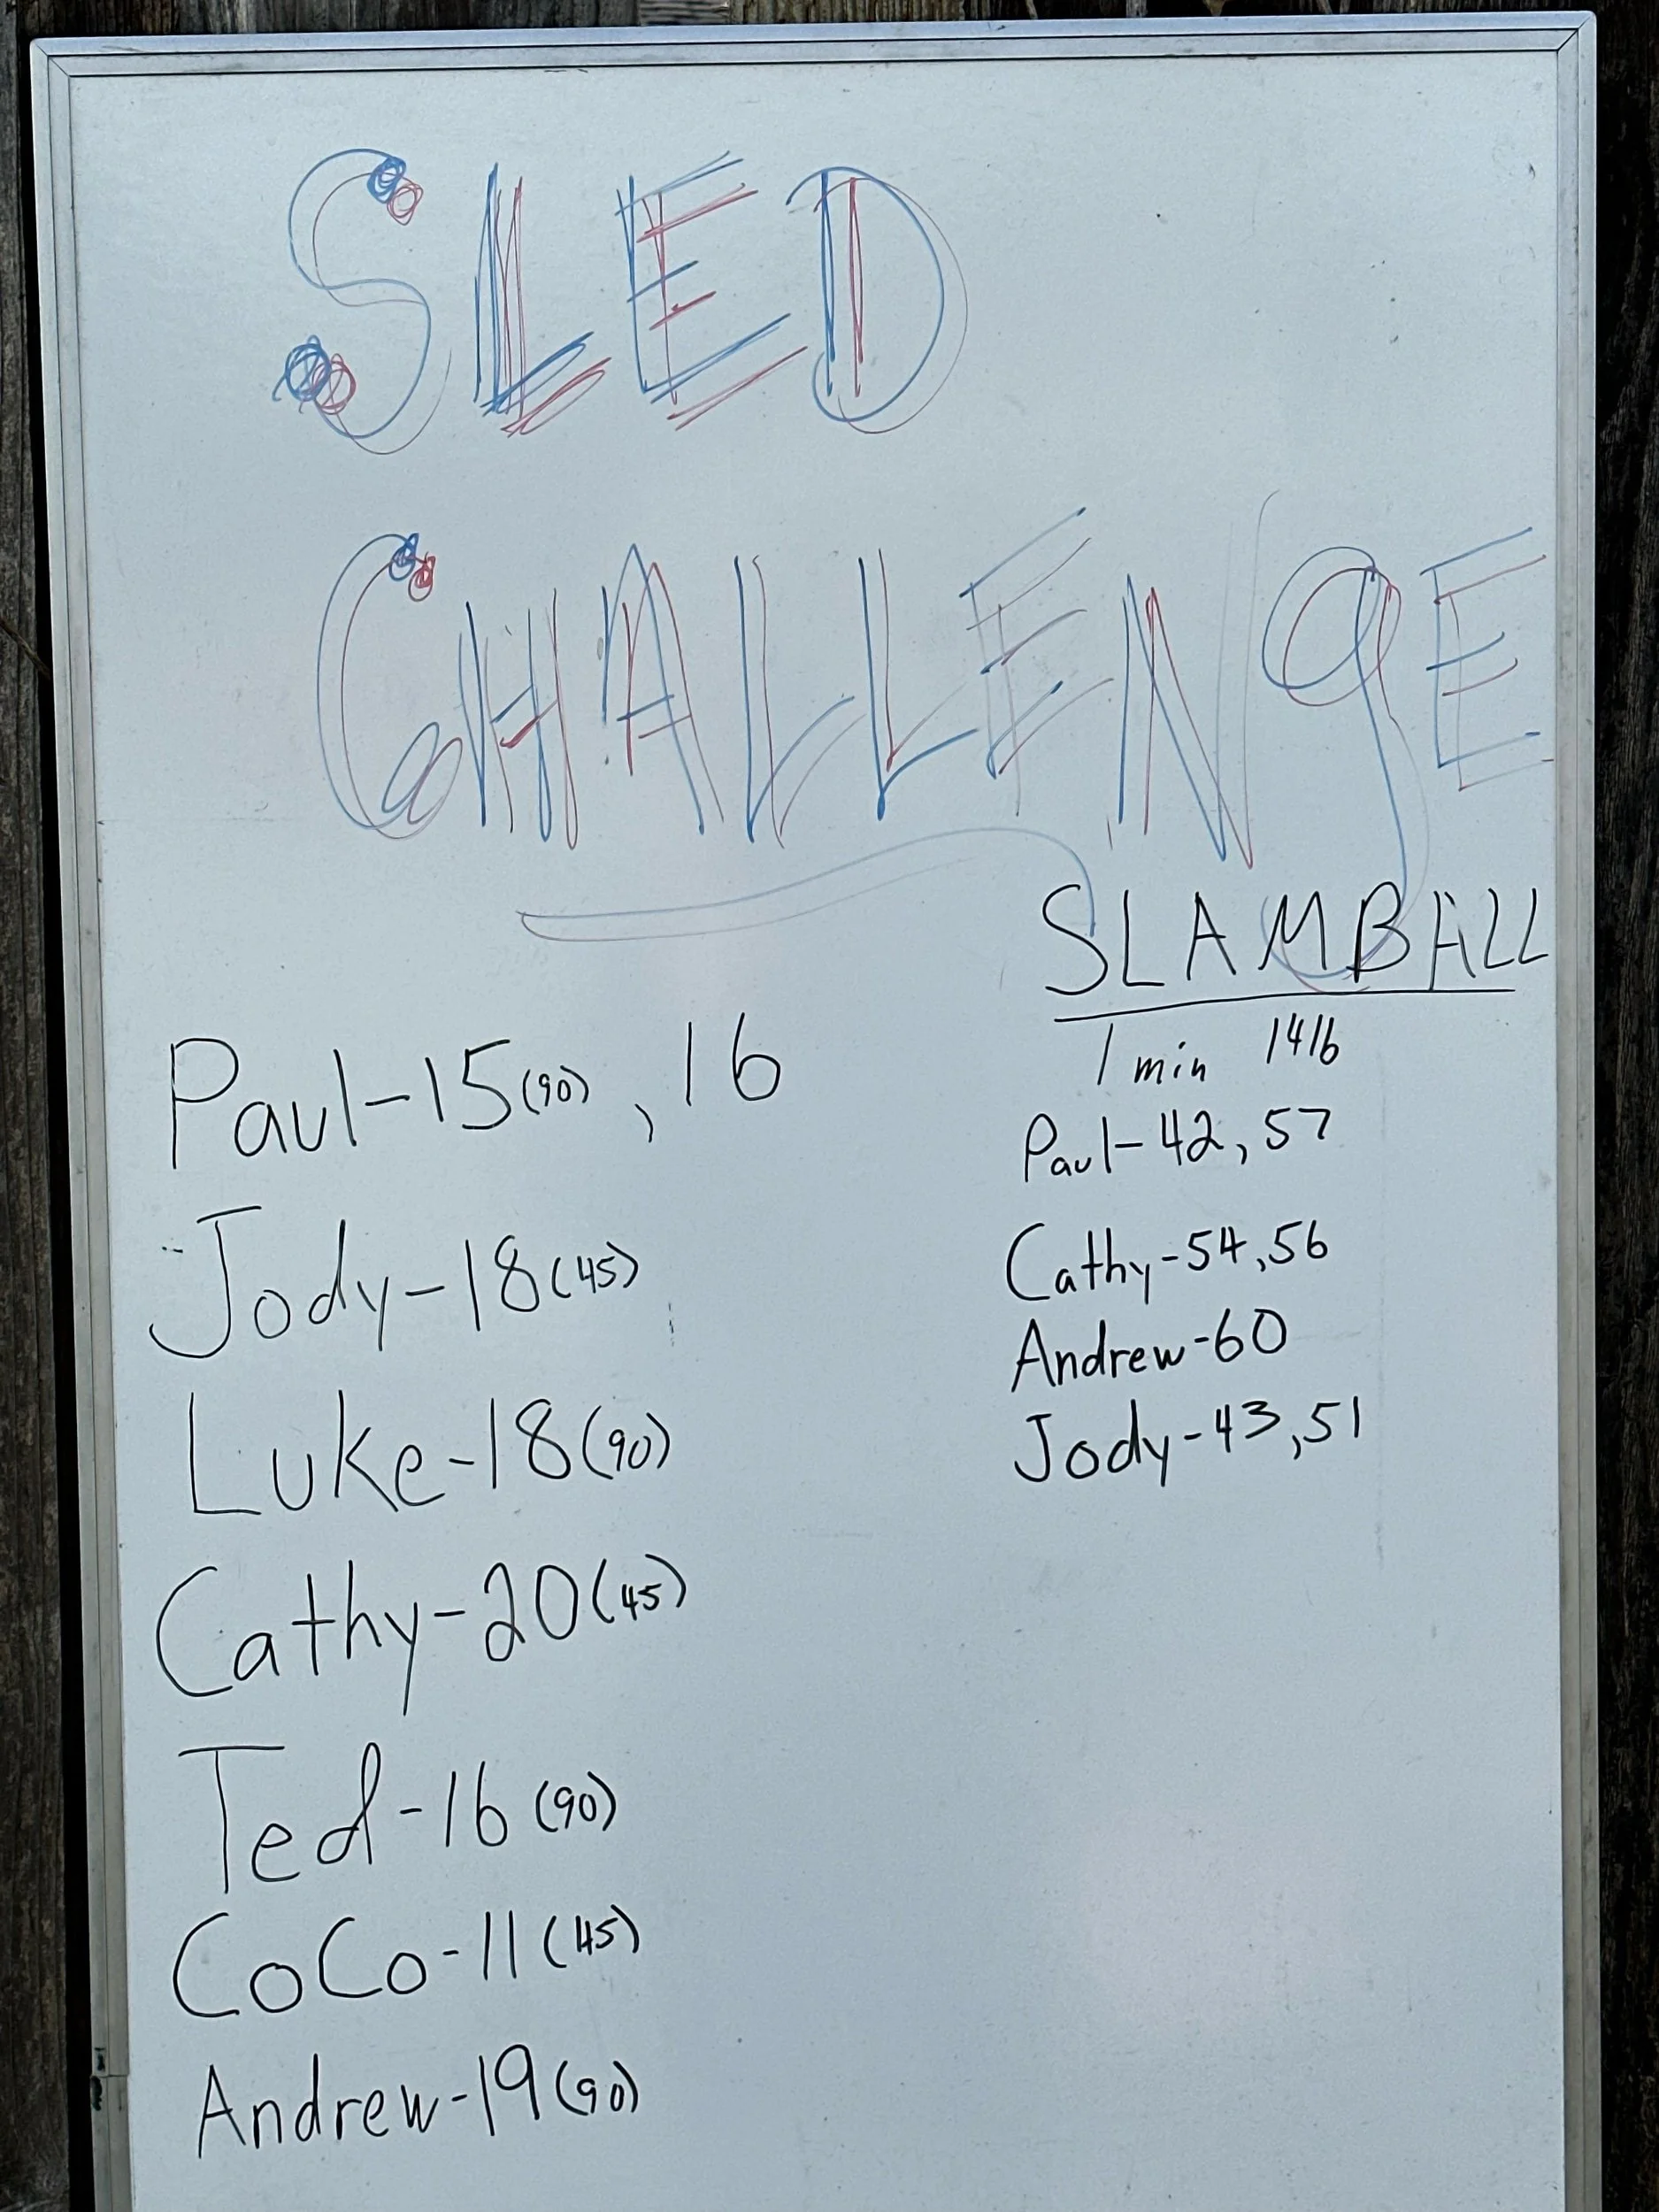 SLED
CHALLENgE
Paul-15(90), 16
Jody-18(45)
Luke-18(90)
Cathy-20(45)
Ted-16(90)
CoCo-11(45)
Andrew-19(90)
SLAMBALL
1 min 14lb
Paul-42,57
Cathy-54,56
Andrew-60
Jody-43,51